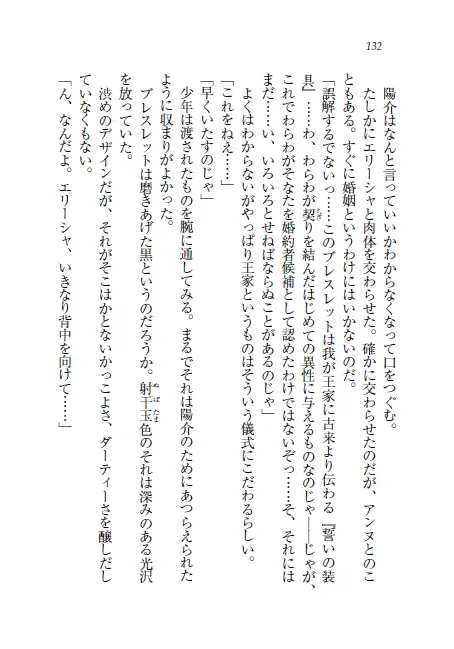 132
陽介はなんと言っていいかわからなくなって口をつぐむ。
たしかにエリーシャと肉体を交わらせた。確かに交わらせたのだが、アンヌとのこ
ともある。すぐに婚姻というわけにはいかないのだ。
「誤解するでないっ……このブレスレットは我が王家に古来より伝わる『誓いの装
具』……わ、わらわが契りを結んだはじめての異性に与えるものなのじゃ――じゃが、
これでわらわがそなたを婚約者候補として認めたわけではないぞっ……そ、それには
まだ……い、いろいろとせねばならぬことがあるのじゃ」
よくはわからないがやっぱり王家というものはそういう儀式にこだわるらしい。
「これをねえ……」
「早くいたすのじゃ」
少年は渡されたものを腕に通してみる。まるでそれは陽介のためにあつらえられた
ように収まりがよかった。
ブレスレットは磨きあげた黒というのだろうか。射干玉色のそれは深みのある光沢
を放っていた。
渋めのデザインだが、それがそこはかとないかっこよさ、ダーティーさを醸しだし
ていなくもない。
「ん、なんだよ。エリーシャ、いきなり背中を向けて……」